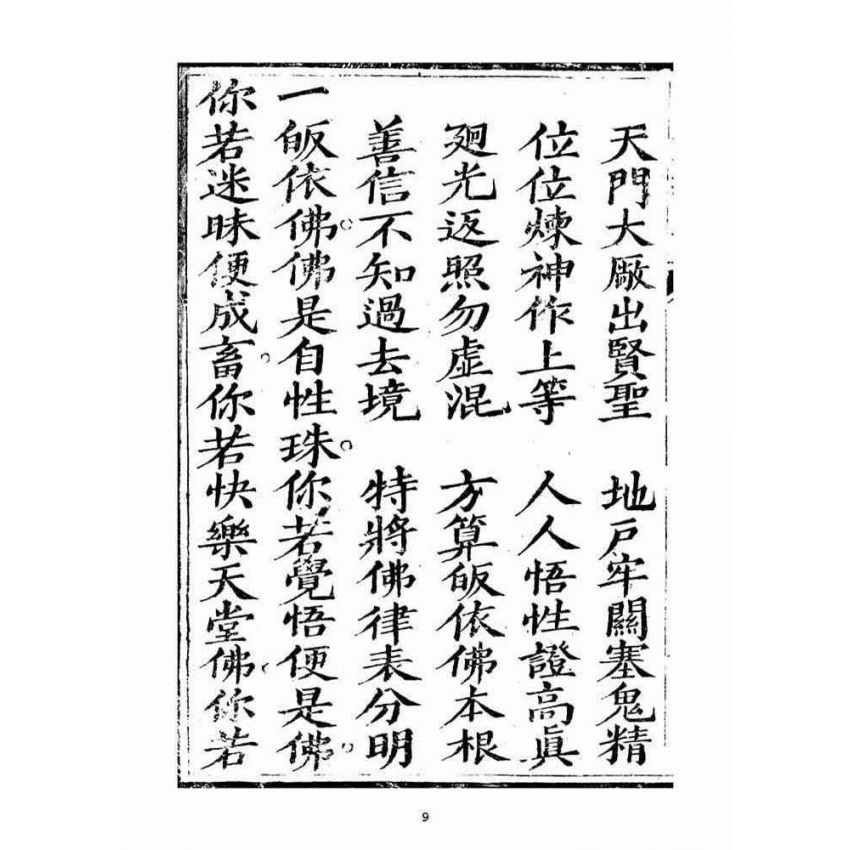 天門大厰出賢聖　地戸牢關塞鬼精
位位煉神作上等　人人悟性證高眞
廻光返照勿虛混　方算皈依佛本根
善信不知過去境　特將佛律表分明
一皈依佛。佛是自性珠。你若覺悟便是佛。
你若迷昧便成畜。你若快樂天堂佛。你若
9